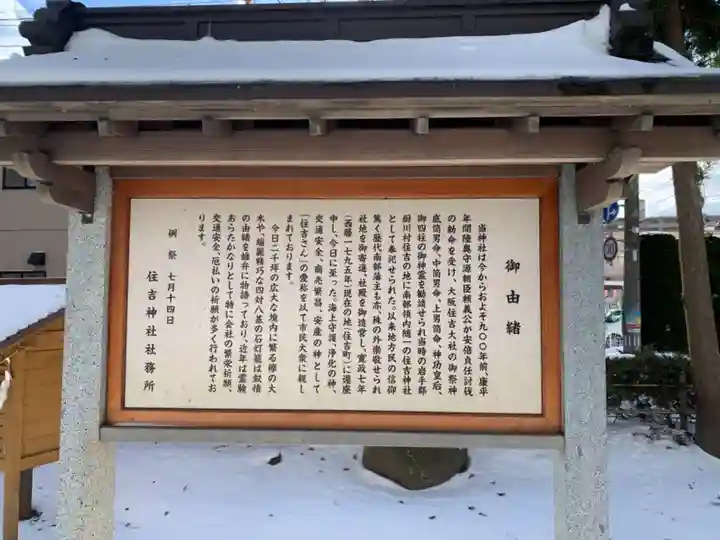 御由緒
当神社は今からおよそ九〇〇年前、康平
年間陸奥守源朝臣頼義公が安倍貞任討伐
の勅命を受け、大阪住吉大社の御祭神
底筒男命、中筒男命、上筒男命、神功皇后、
御四柱の御神霊を勧請せられ当時の岩手郡
厨川村住吉の地に南部領内随一の住吉神社
として奉祀せられた。以来地方民の信仰
篤く歴代南部藩主も亦、殊の外崇敬せられ
社地を御寄進、社殿を御造営し、寛政七年
（西暦一七九五年）現在の地（住吉町）に遷座
申し、今日に至った。海上守護、浄化の神、
交通安全、商売繁昌、安産の神として
「住吉さん」の愛称を以て市民大衆に親し
まれております。
今日二千坪の広大な境内に繁る欅の大
木や、端麗精巧な四対八基の石灯籠は叙情
の由緒を雄弁に物語っており、近年は霊験
あらたかなりとして特に会社の繁栄祈願、
交通安全、厄払いの祈願が多く行われてお
ります。
例祭 七月十四日
住吉神社社務所